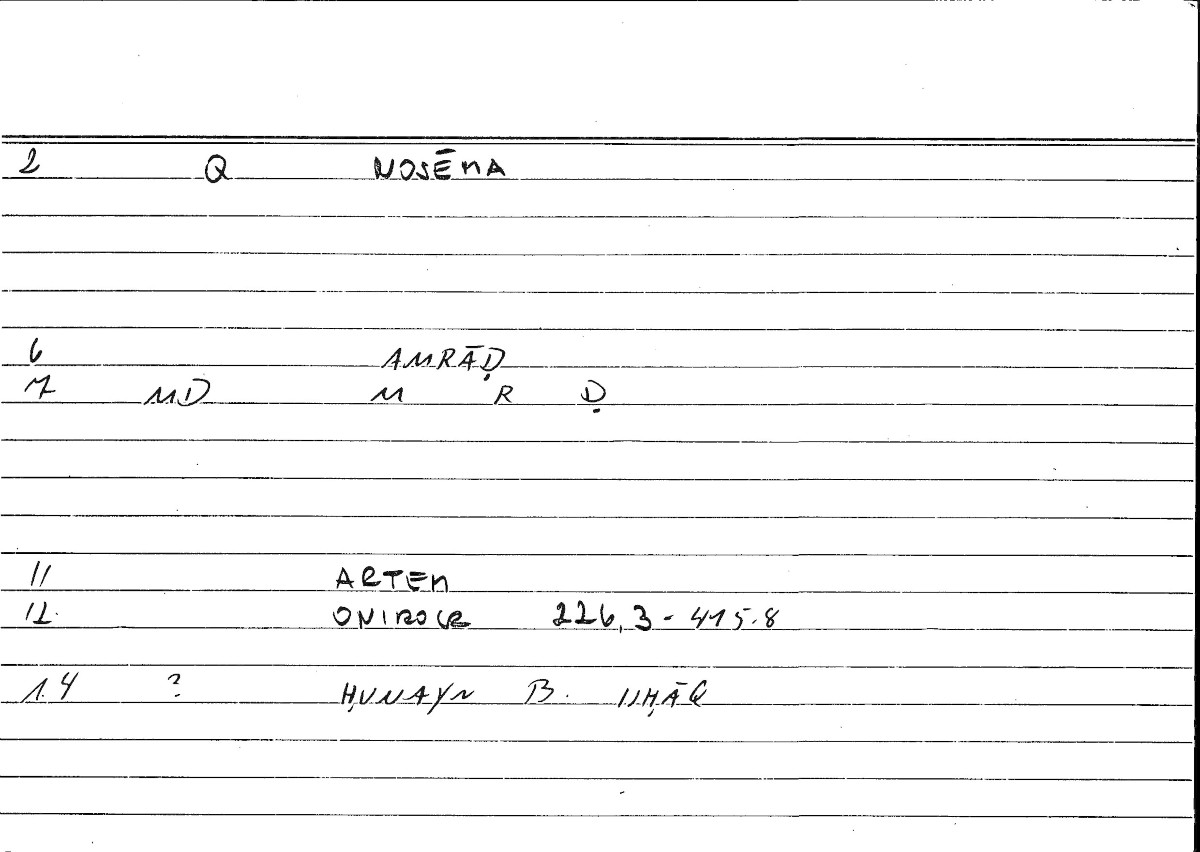 2 Q NOSĒMA
6 AMRĀḌ
7 MD M R Ḍ
11 ARTEM
12. ONIROCR 226,3-415.8
14 ? ḤUNAYN B. ISḤĀQ